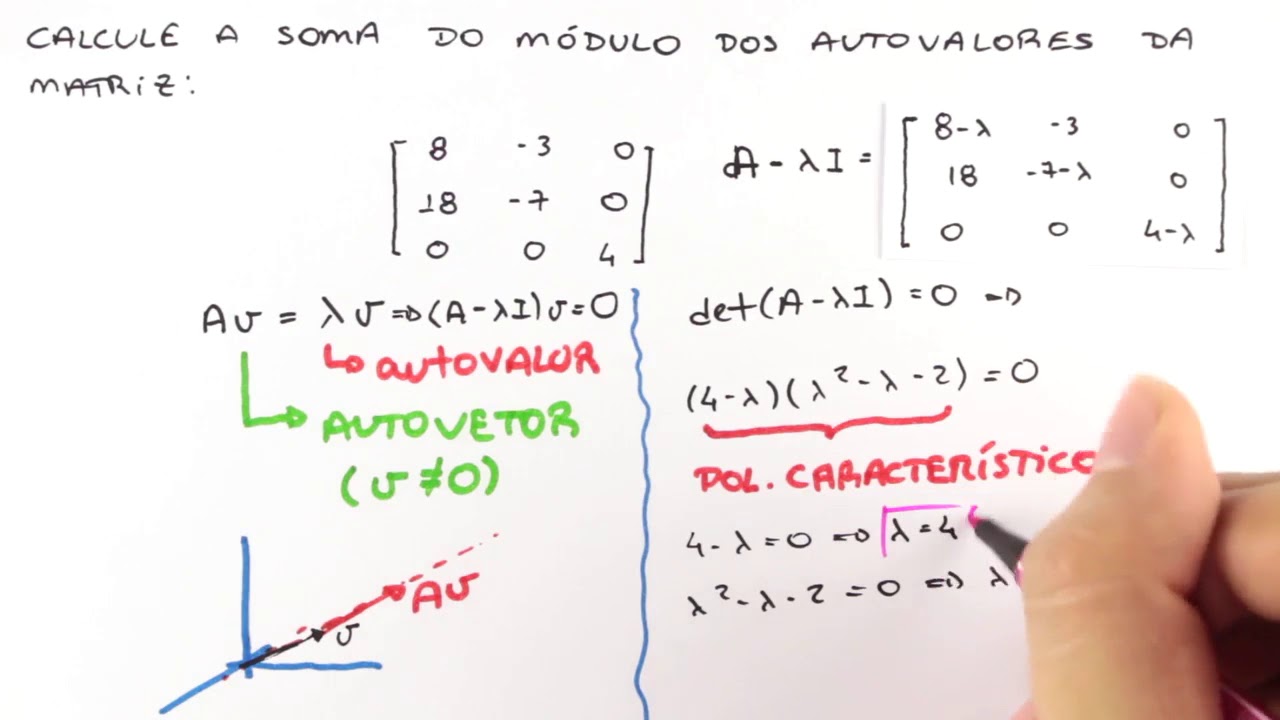 CALCULE A SOMA DO MÓDULO DOS AUTOVALORES DA
MATRIZ:
8 -3 0
18 -7 0
0 0 4
A - λI =
8-λ -3 0
18 -7-λ 0
0 0 4-λ
Aʋ = λʋ ⇒ (A-λI)ʋ=0
↳ AUTOVALOR
AUTOVETOR
(ʋ ≠ 0)
Aʋ
ʋ
det(A-λI) = 0 ⇒
(4-λ)(λ²-λ-2) = 0
POL. CARACTERÍSTICO
4-λ=0 ⇒ λ=4
λ²-λ-2 = 0 ⇒ λ